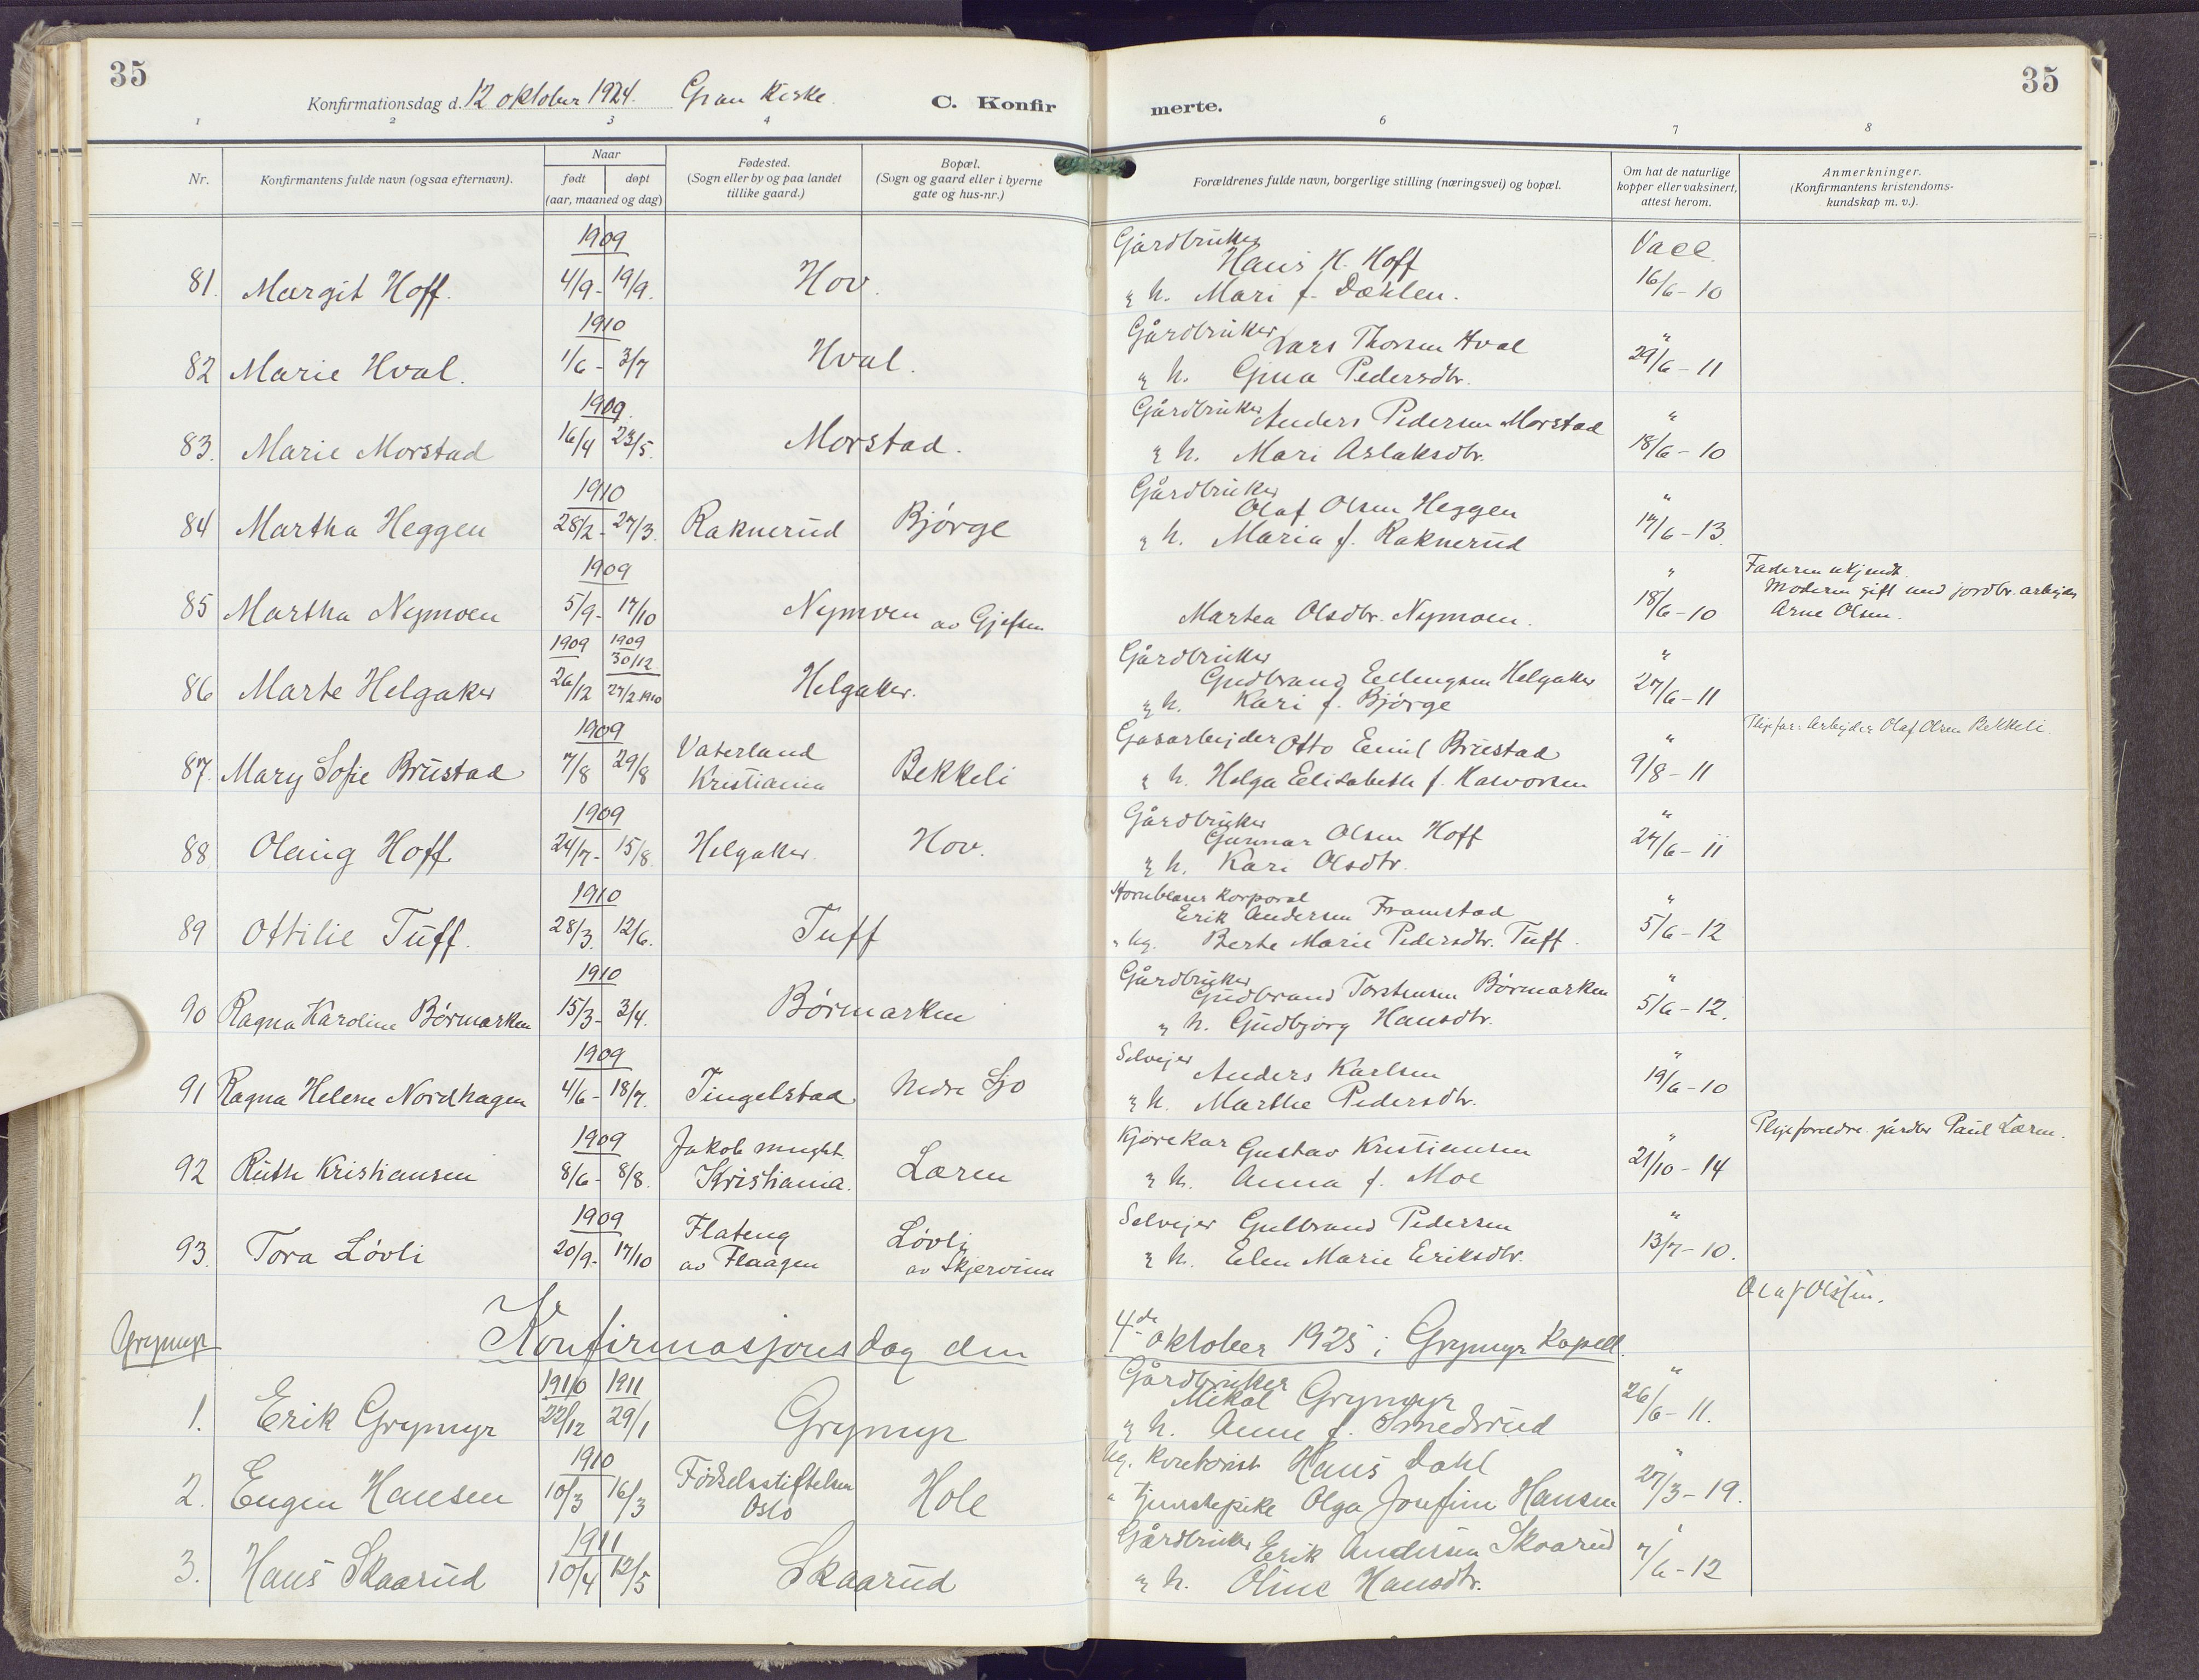 35
Konfirmationsdag d. 12 oktober 1924. Gran Kirke.
C. Konfirmerte.
35
1 2 3 4 6 7 8
Nr.
Konfirmantens fulde navn (ogsaa efternavn).
Naar
født døpt
(aar, maaned og dag)
Fødested.
(Sogn eller by og paa landet
tillike gaard.)
Bopæl.
(Sogn og gaard eller i byerne
gate og hus-nr.)
Forældrenes fulde navn, borgerlige stilling (næringsvei) og bopæl.
Om hat de naturlige
kopper eller vaksinert,
attest herom.
Anmerkninger.
(Konfirmantens kristendoms-
kundskap m. v.).
1909 Gårdbruker Vacc.
81. Margit Hoff. 4/9 - 19/9. Hov. Hans H. Hoff 16/6 - 10
h. Mari f. Dæhlen.
1910 Gårdbruker "
82 Marie Hval. 1/6 - 3/7 Hval. Lars Thorsen Hval 29/6 - 11
h. Gina Pedersdtr.
1909. Gårdbruker "
83. Marie Morstad 16/4 23/5. Morstad. Anders Pedersen Morstad 18/6 - 10
h. Mari Aslaksdtr.
1910 Gårdbruker "
84 Martha Heggen 28/2 - 27/3. Raknerud Bjørge Olaf Olsen Heggen 17/6 - 13
h. Maria f. Raknerud
1909 " Faderen ukjendt.
85 Martha Nymoen 5/9 - 17/10 Nymoen av Gjefsen Martea Olsdtr. Nymoen. 18/6 - 10 Moderen gift med jordbr. arbeider
Arne Olsen.
1909 1909 30/12 Gårdbruker "
86 Marte Helgaker 26/12 27/2 1910 Helgaker. Gudbrand Ellingsen Helgaker 27/6 - 11
h. Kari f. Bjørge
1909 Vaterland Gasarbeider Otto Emil Brustad " Pleiefar: Arbeider Olaf Olsen Bekkeli.
87. Mary Sofie Brustad 7/8 29/8 Kristiania Bekkeli h. Helga Elisabeth f. Halvorsen 9/8 - 11
1909 Gårdbruker "
88 Olaug Hoff 24/7 - 15/8. Helgaker. Hov. Gunnar Olsen Hoff 27/6 - 11
h. Kari Olsdtr.
1910 Hornblæser korporal "
89 Ottilie Tuff. 28/3. 12/6. Tuff Erik Andersen Framstad 5/6 - 12
Ug. Berte Marie Pedersdtr. Tuff.
1910 Gårdbruker "
90 Ragna Karoline Børmarken 15/3 - 3/4. Børmarken Gudbrand Torstensen Børmarken 5/6 - 12.
h. Gudbjørg Hansdtr.
1909 Selveier "
91 Ragna Helene Nordhagen 4/6 - 18/7. Tingelstad Nedre Sjo Anders Karlsen 19/6 - 10
h. Marthe Pedersdtr.
1909 Jakob menight. Kjørekar Gustav Kristiansen " Pleieforeldre. gårdbr Paul Læren.
92 Ruth Kristiansen 8/6 - 8/8. Kristiania. Læren h. Anna f. Moe 21/10 - 14
1909 Flateng Løvli Selveier Gulbrand Pedersen "
93. Tora Løvli 20/9 - 17/10 av Flaagen av Skjervum h. Elen Marie Eriksdtr. 13/7 - 10.
Olaf Olssen.
Grymyr Konfirmasjonsdag den 4de oktober 1925 i Grymyr Kapell.
1910 1911 Gårdbruker "
1. Erik Grymyr 22/12 29/1 Grymyr Mikal Grymyr 26/6 - 11.
h. Anne f. Smedsrud
1910 Fødselsstiftelsen Ug. Hans Dahl "
2. Eugen Hansen 10/3 16/3 Oslo Hole Tjenestepike Olga Josefine Hansen 27/3 - 19.
1911 Gårdbruker Erik Andersen Skaarud "
3. Hans Skaarud 10/4 12/5 Skaarud h. Oline Hansdtr. 7/6 - 12